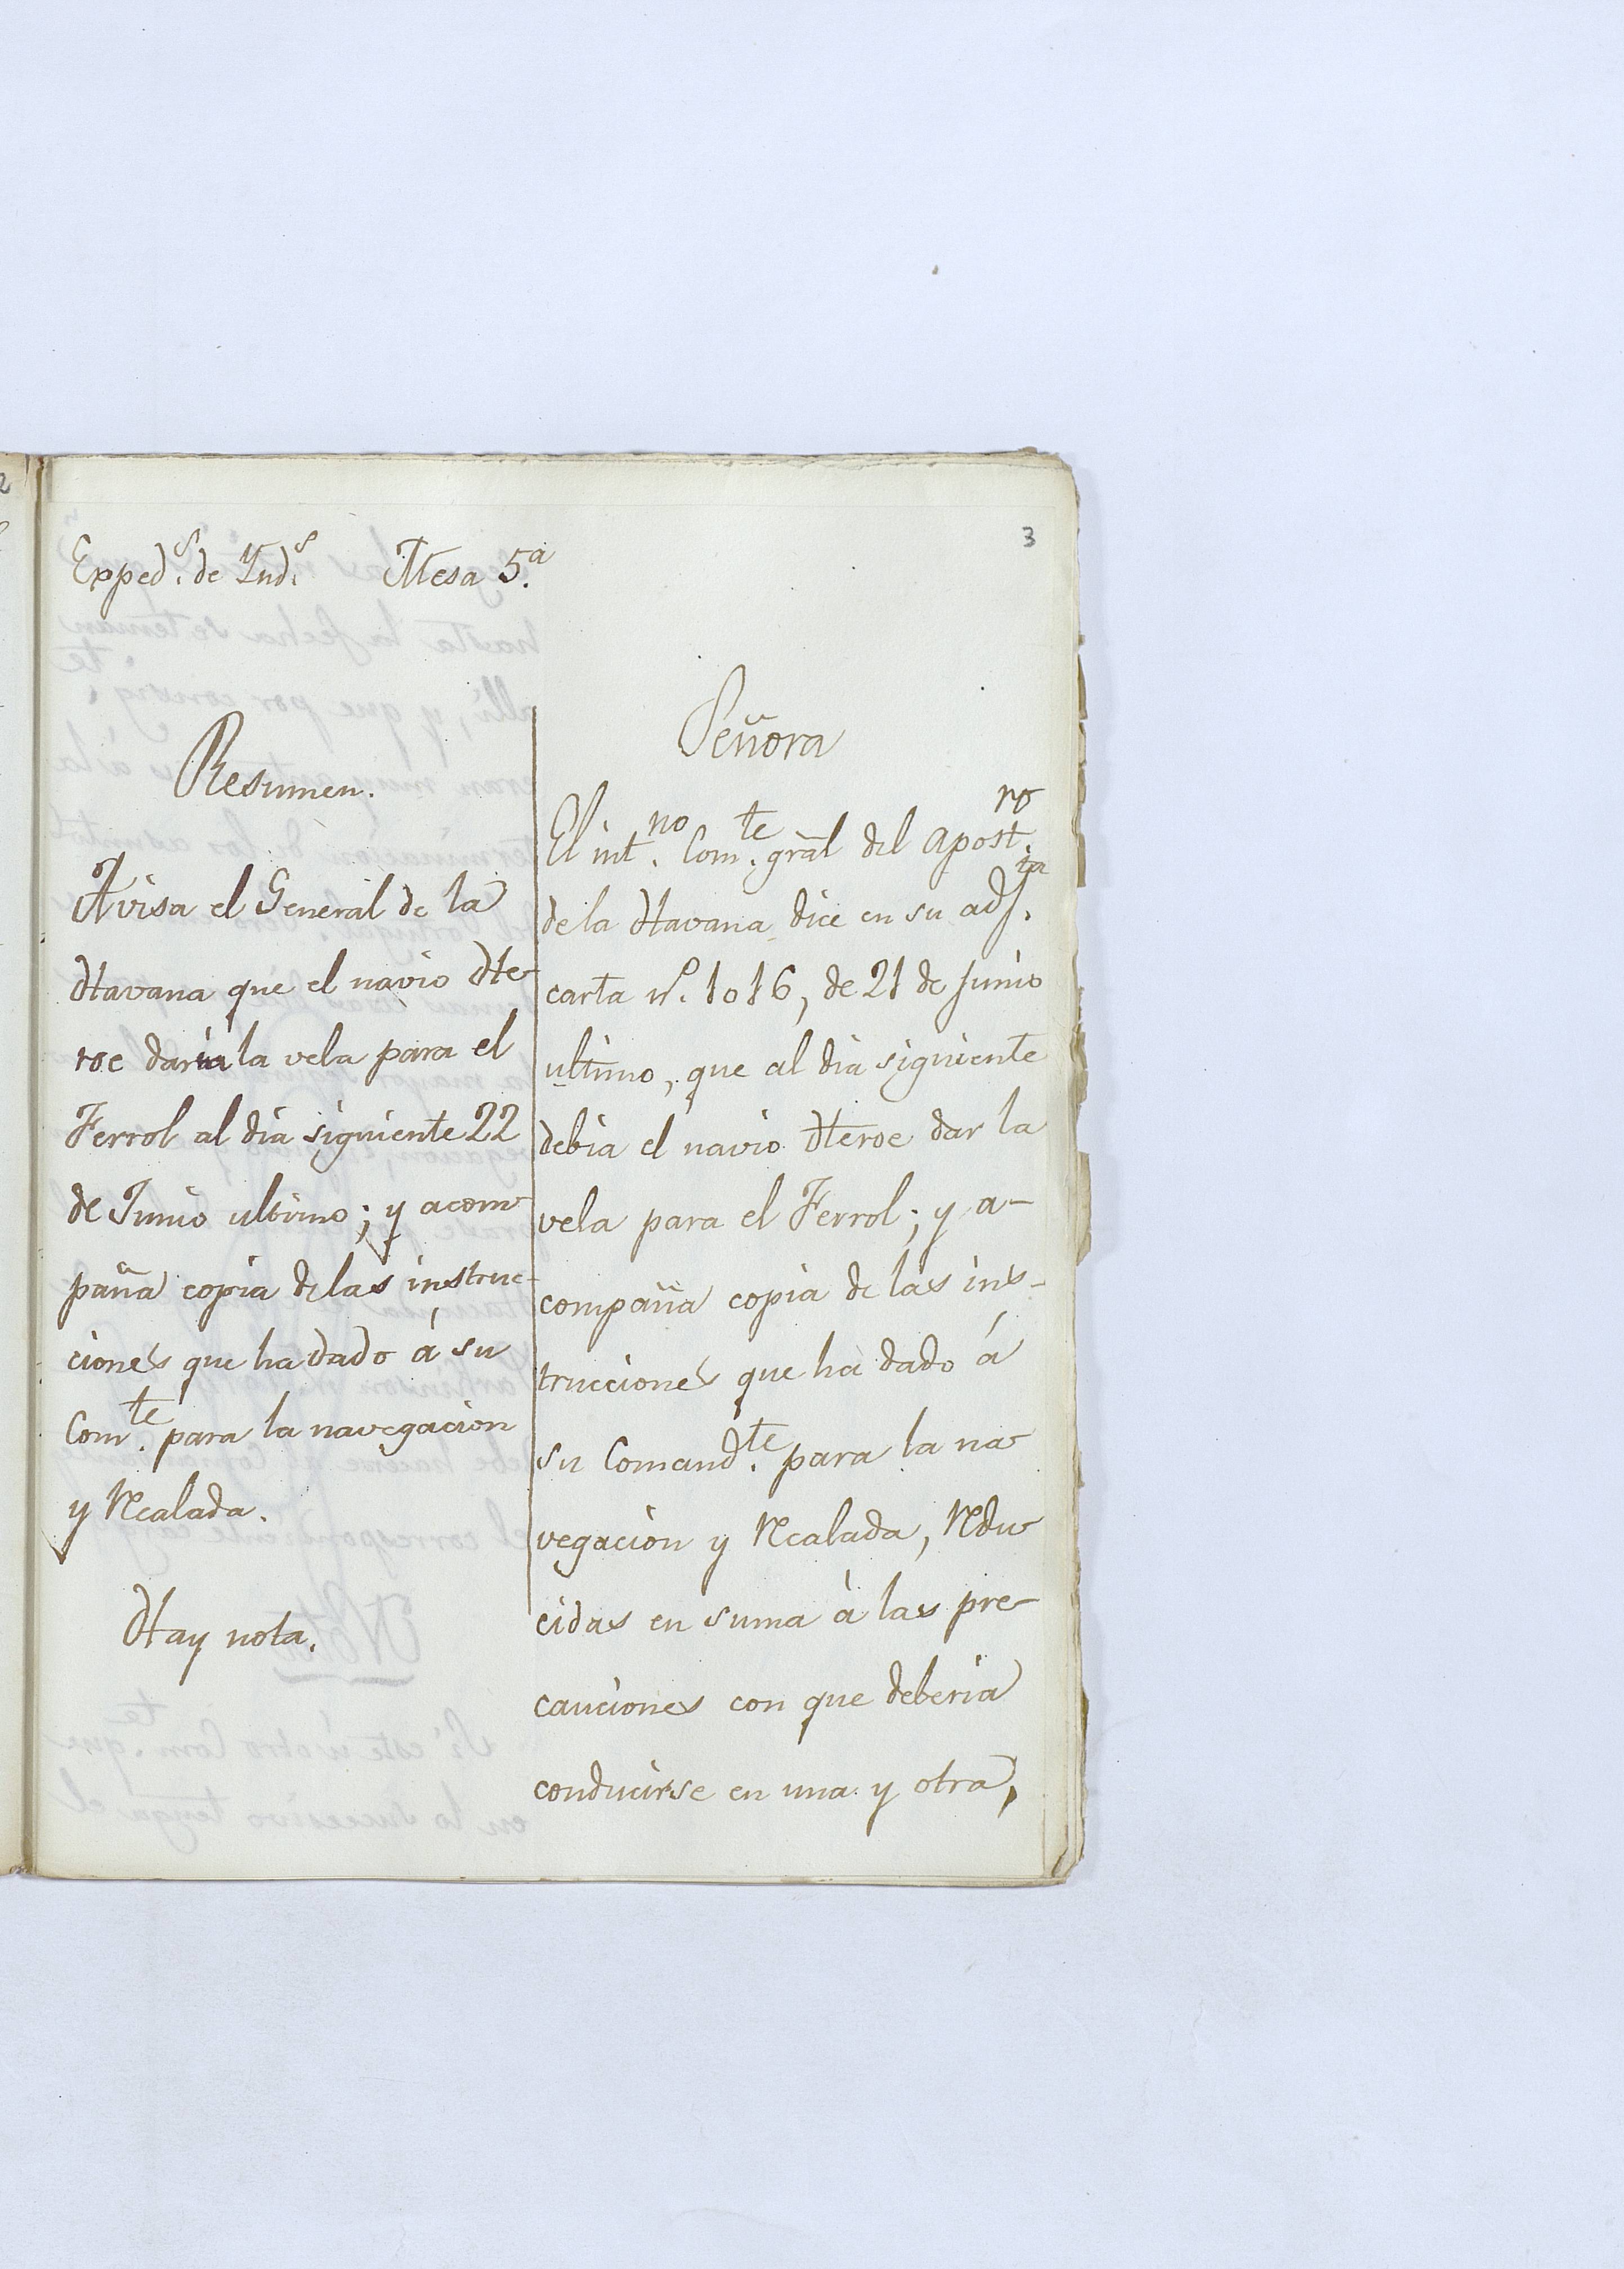 3
Exped.s de Ynd.s Mesa 5.a
Resumen.
Avisa el General de la
Havana que el navio He-
roe daria la vela para el
Ferrol al dia siguiente 22
de Junio ultimo; y acom-
paña copia de las instruc-
ciones que ha dado á su
Com.te para la navegacion
y Recalada.
Hay nota.
Señora
El int.no Com.te gral del Apost.ro
de la Havana dice en su adj.ta
carta n.o 1016, de 21 de Junio
ultimo, que al dia siguiente
debia el navio Heroe dar la
vela para el Ferrol; y a-
compaña copia de las ins-
trucciones que ha dado á
su Comand.te para la na-
vegacion y Recalada, Redu-
cidas en suma á las pre-
cauciones con que deberia
conducirse en una y otra,